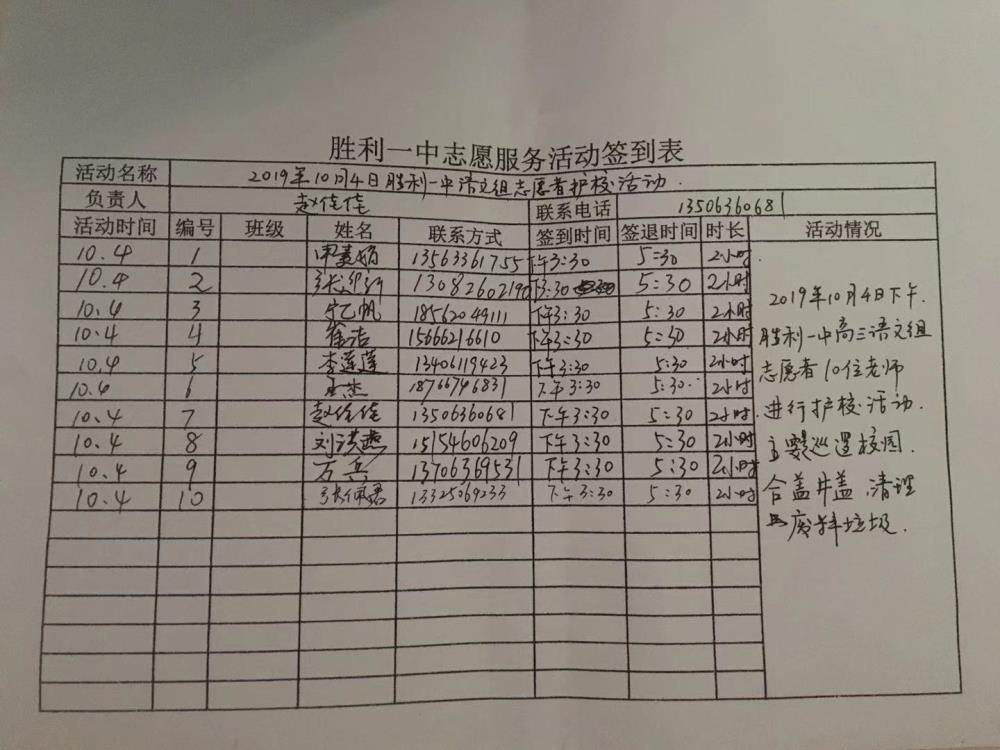 胜利一中志愿服务活动签到表
活动名称 2019年10月4日胜利一中语文组志愿者护校活动.
负责人 赵佳佳 联系电话 13506360681
活动时间 编号 班级 姓名 联系方式 签到时间 签退时间 时长 活动情况
10.4 1 13563361755 下午3:30 5:30 2小时
10.4 2 13082602190 下3:30 5:30 2小时
10.4 3 宁乙帆 18562049111 下午3:30 5:30 2小时
10.4 4 徐洁 15666216610 下午3:30 5:30 2小时
10.4 5 李莲莲 13406119423 下午3:30 5:30 2小时
10.4 6 王杰 18766746831 下午3:30 5:30 2小时
10.4 7 赵佳佳 13506360681 下午3:30 5:30 2小时
10.4 8 刘洪燕 15154606209 下午3:30 5:30 2小时
10.4 9 万兵 13706369531 下午3:30 5:30 2小时
10.4 10 13325069233 下午3:30 5:30 2小时
2019年10月4日下午.
胜利一中高三语文组
志愿者10位老师
进行护校活动.
主要巡逻校园.
合盖井盖.清理
废料垃圾.